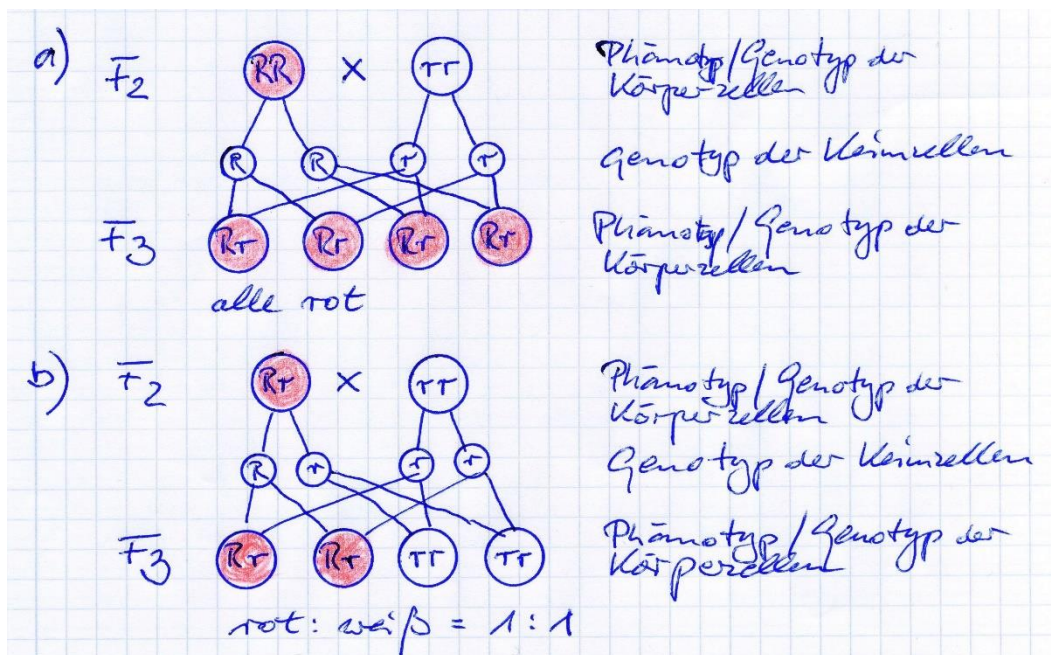 a) F2 RR × rr Phänotyp/Genotyp der
Körperzellen
R R r r Genotyp der Keimzellen
F3 Rr Rr Rr Rr Phänotyp/Genotyp der
Körperzellen
alle rot
b) F2 Rr × rr Phänotyp/Genotyp der
Körperzellen
R r r r Genotyp der Keimzellen
F3 Rr Rr rr rr Phänotyp/Genotyp der
Körperzellen
rot: weiß = 1:1